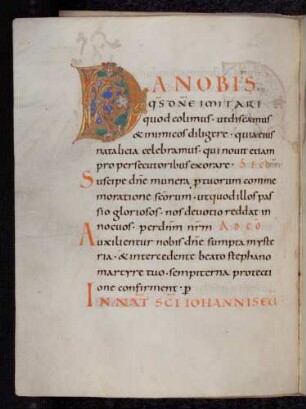 DA NOBIS
QS DNE IMITARI
quod colimus · ut discamus
& inimicos diligere · quia eius
natalicia celebramus · qui nouit etiam
pro persecutoribus exorare · SECR
Suscipe dne munera p tuorum comme
moratione scorum · ut quod illos pas
sio gloriosos · nos deuotio reddat in
nocuos · per dnm nrm AD CO
Auxilientur nobis dne sumpta myste
ria · & intercedente beato stephano
martyre tuo · sempiterna protecti
one confirment · p
IN NAT SCI IOHANNIS EU